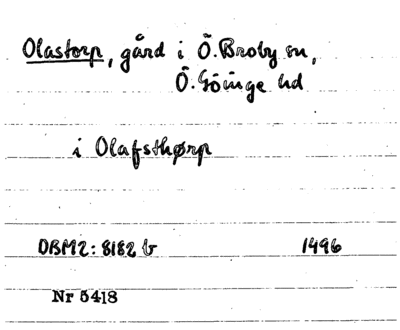 Olastorp, gård i Ö. Broby sn,
Ö. Göinge hd
i Olafsthørp
DBM2: 8182 b 1496
Nr 5418